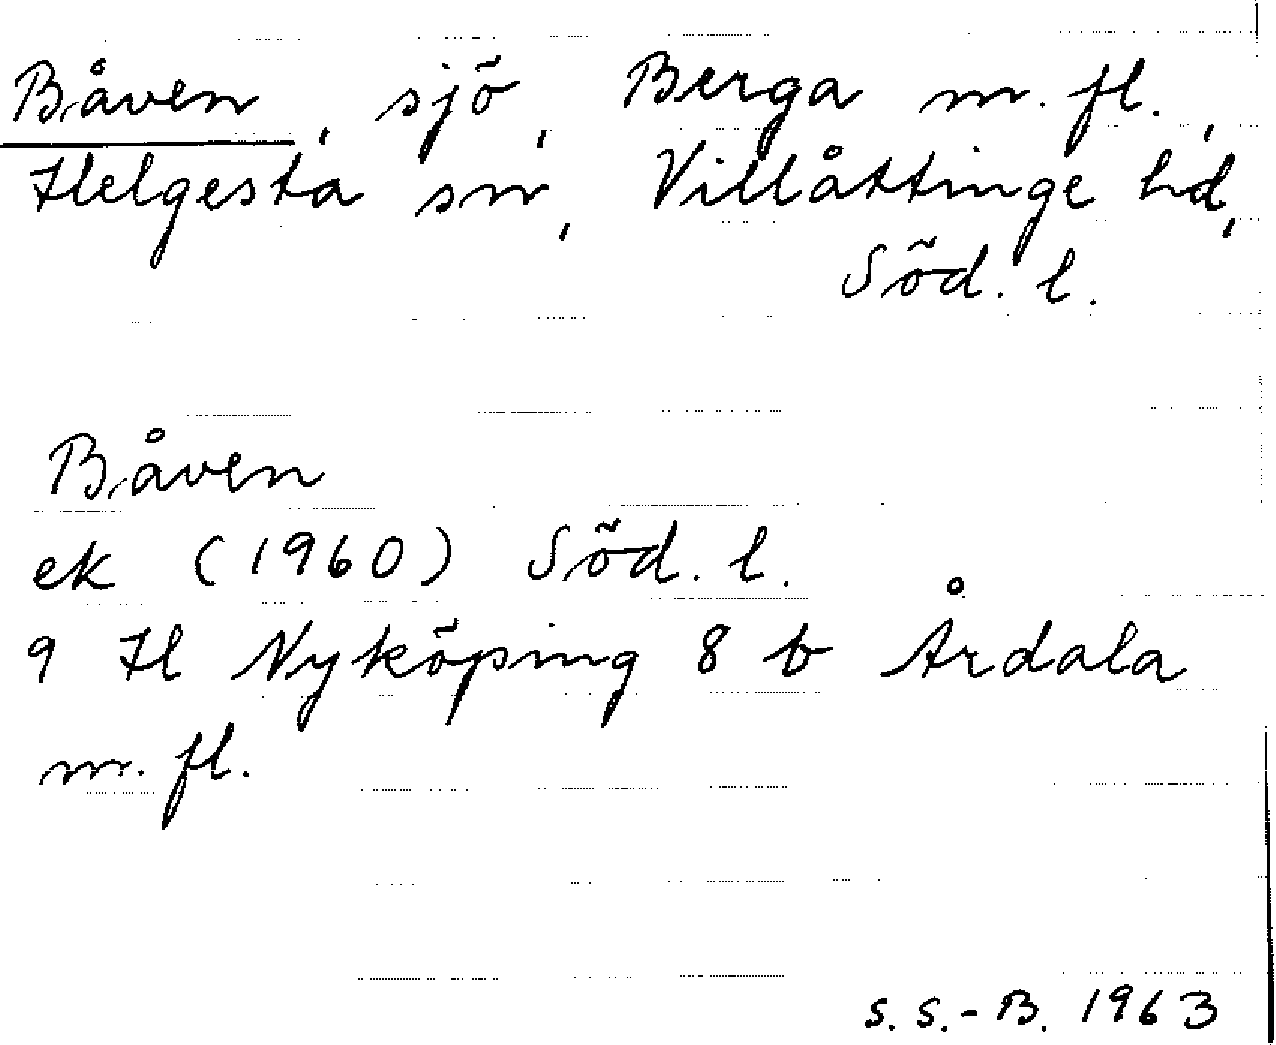 Båven, sjö, Berga m. fl.,
Helgesta sn, Villåttinge hd,
Söd. l.
Båven
ek (1960) Söd. l.
9 H Nyköping 8 b Årdala
m. fl.
S. S.-B. 1963